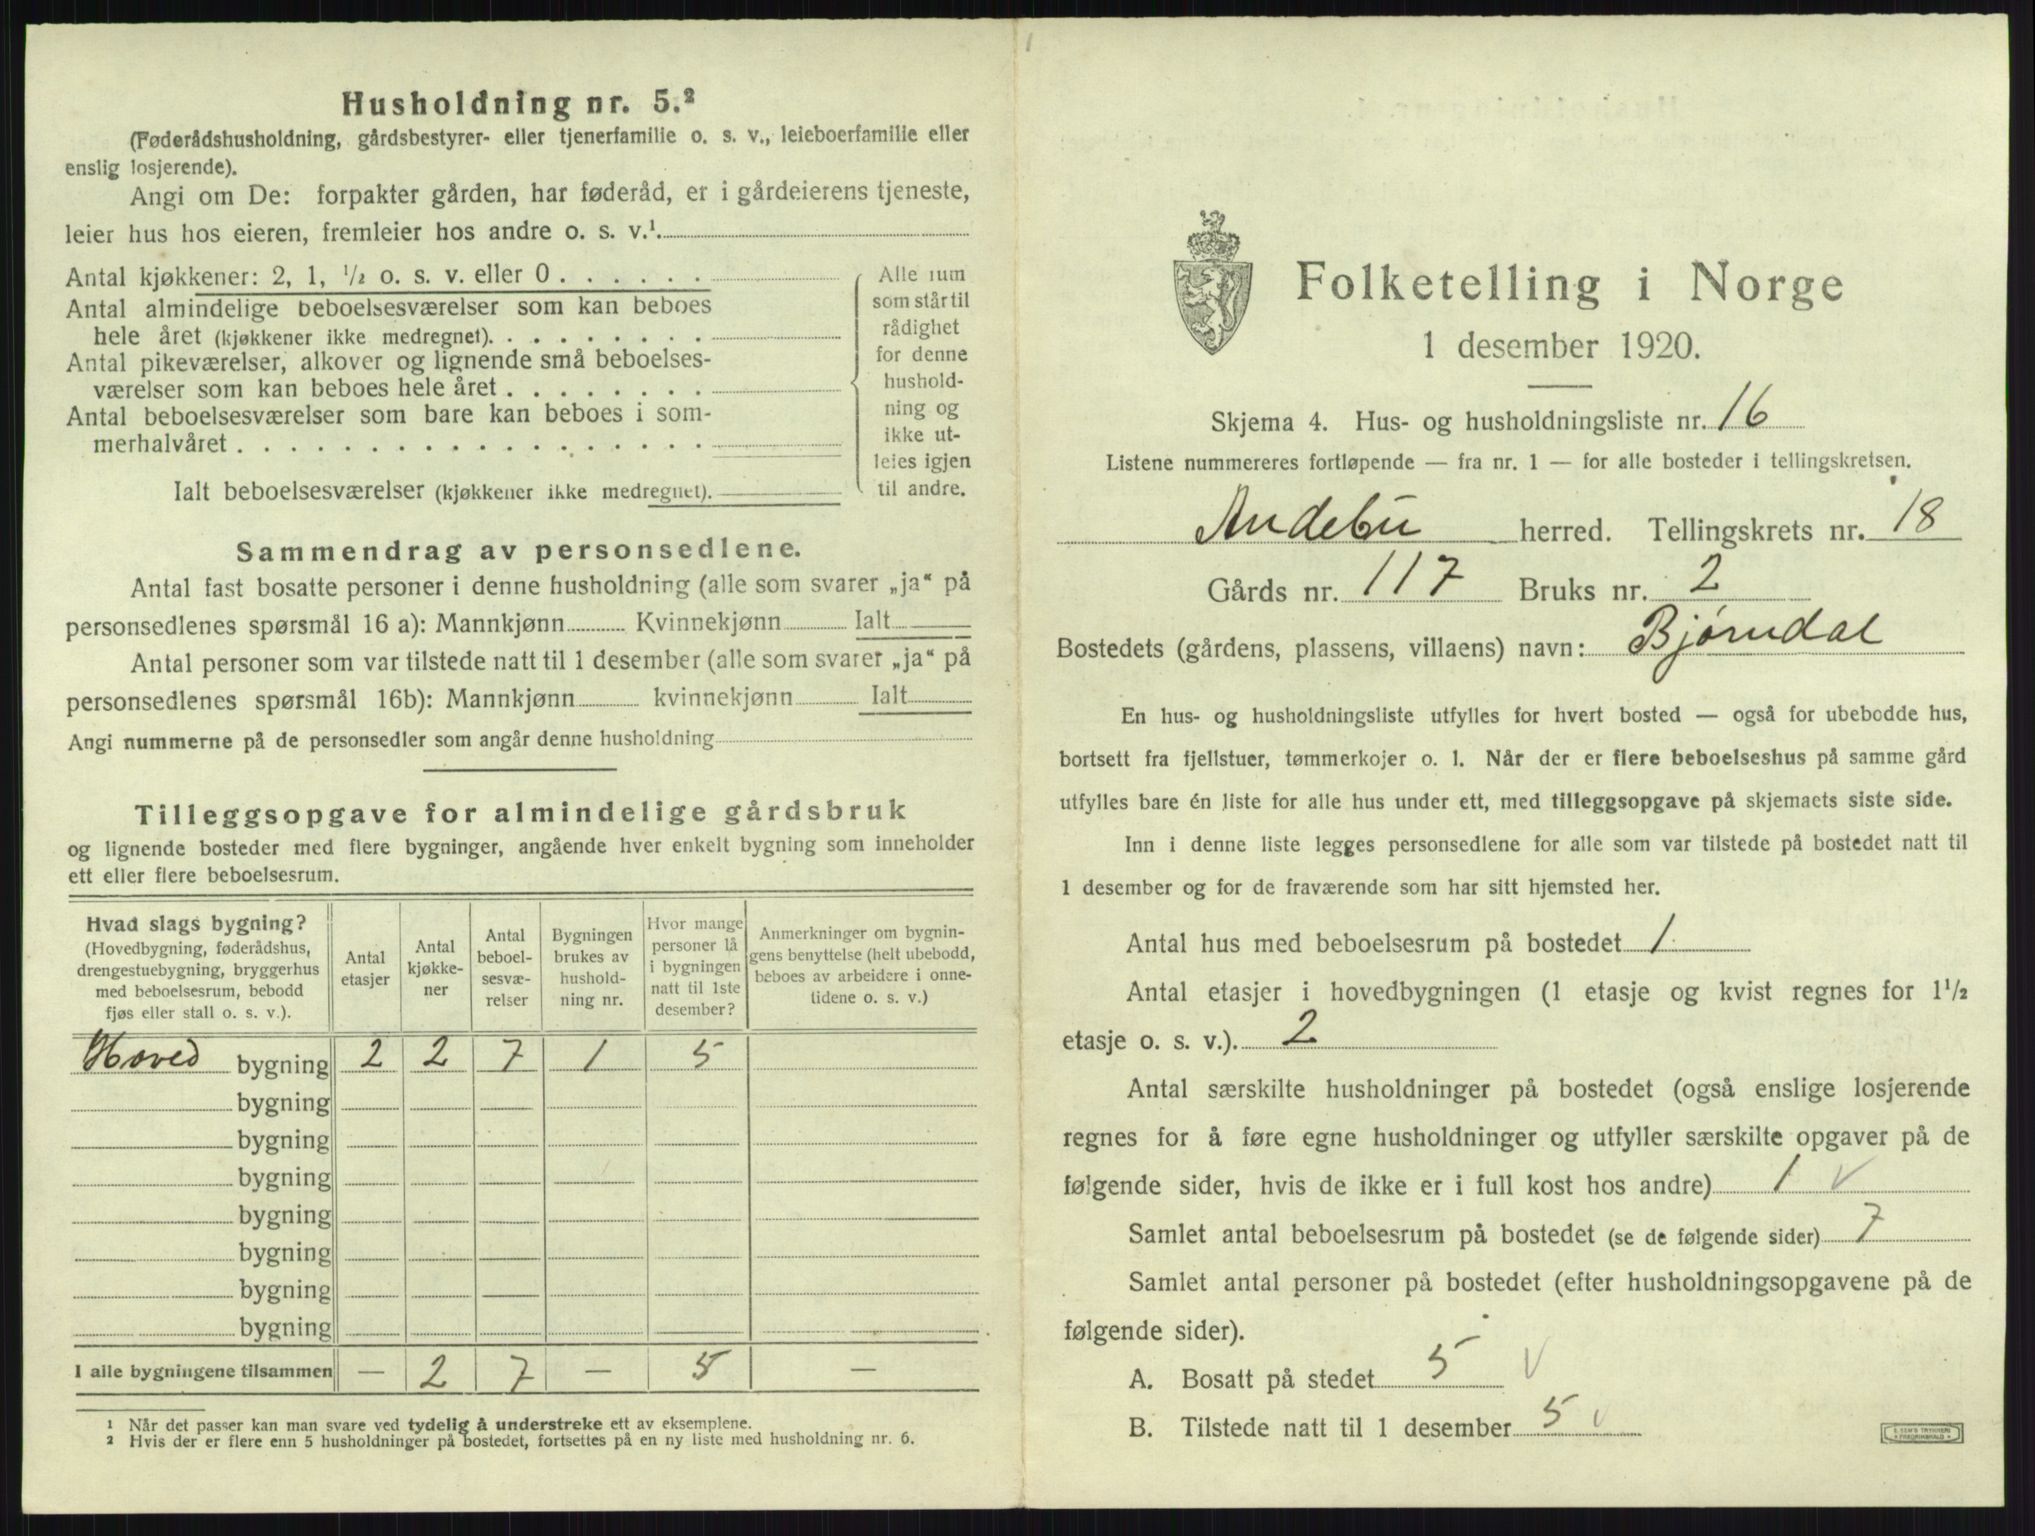 Husholdning nr. 5.²
(Føderådshusholdning, gårdsbestyrer- eller tjenerfamilie o. s. v., leieboerfamilie eller
enslig losjerende).
Angi om De: forpakter gården, har føderåd, er i gårdeierens tjeneste,
leier hus hos eieren, fremleier hos andre o. s. v.¹
Antal kjøkkener: 2, 1, ½ o. s. v. eller 0 . . . . . .
Antal almindelige beboelsesværelser som kan beboes
hele året (kjøkkener ikke medregnet). . . . . . . . .
Antal pikeværelser, alkover og lignende små beboelses-
værelser som kan beboes hele året . . . . . . . .
Antal beboelsesværelser som bare kan beboes i som-
merhalvåret . . . . . . . . . . . . . . . . . .
Ialt beboelsesværelser (kjøkkener ikke medregnet).
Alle rum
som står til
rådighet
for denne
hushold-
ning og
ikke ut-
leies igjen
til andre.
Sammendrag av personsedlene.
Antal fast bosatte personer i denne husholdning (alle som svarer „ja“ på
personsedlenes spørsmål 16 a): Mannkjønn Kvinnekjønn Ialt
Antal personer som var tilstede natt til 1 desember (alle som svarer „ja“ på
personsedlenes spørsmål 16b): Mannkjønn kvinnekjønn Ialt
Angi nummerne på de personsedler som angår denne husholdning
Tilleggsopgave for almindelige gårdsbruk
og lignende bosteder med flere bygninger, angående hver enkelt bygning som inneholder
ett eller flere beboelsesrum.
Hvad slags bygning?
(Hovedbygning, føderådshus,
drengestuebygning, bryggerhus
med beboelsesrum, bebodd
fjøs eller stall o. s. v.).
Antal
etasjer
Antal
kjøkke-
ner
Antal
beboel-
sesvæ-
relser
Bygningen
brukes av
hushold-
ning nr.
Hvor mange
personer lå
i bygningen
natt til 1ste
desember?
Anmerkninger om bygnin-
gens benyttelse (helt ubebodd,
beboes av arbeidere i onne-
tidene o. s. v.)
Hoved bygning 2 2 7 1 5
bygning
bygning
bygning
bygning
bygning
bygning
bygning
I alle bygningene tilsammen — 2 7 — 5 —
¹ Når det passer kan man svare ved tydelig å understreke ett av eksemplene.
² Hvis der er flere enn 5 husholdninger på bostedet, fortsettes på en ny liste med husholdning nr. 6.
Folketelling i Norge
1 desember 1920.
Skjema 4. Hus- og husholdningsliste nr. 16
Listene nummereres fortløpende — fra nr. 1 — for alle bosteder i tellingskretsen.
Andebu herred. Tellingskrets nr. 18
Gårds nr. 117 Bruks nr. 2
Bostedets (gårdens, plassens, villaens) navn: Bjørndal
En hus- og husholdningsliste utfylles for hvert bosted — også for ubebodde hus,
bortsett fra fjellstuer, tømmerkojer o. l. Når der er flere beboelseshus på samme gård
utfylles bare én liste for alle hus under ett, med tilleggsopgave på skjemaets siste side.
Inn i denne liste legges personsedlene for alle som var tilstede på bostedet natt til
1 desember og for de fraværende som har sitt hjemsted her.
Antal hus med beboelsesrum på bostedet 1
Antal etasjer i hovedbygningen (1 etasje og kvist regnes for 1½
etasje o. s. v.). 2
Antal særskilte husholdninger på bostedet (også enslige losjerende
regnes for å føre egne husholdninger og utfyller særskilte opgaver på de
følgende sider, hvis de ikke er i full kost hos andre) 1 v
Samlet antal beboelsesrum på bostedet (se de følgende sider) 7
Samlet antal personer på bostedet (efter husholdningsopgavene på de
følgende sider).
A. Bosatt på stedet 5 v
B. Tilstede natt til 1 desember 5 v